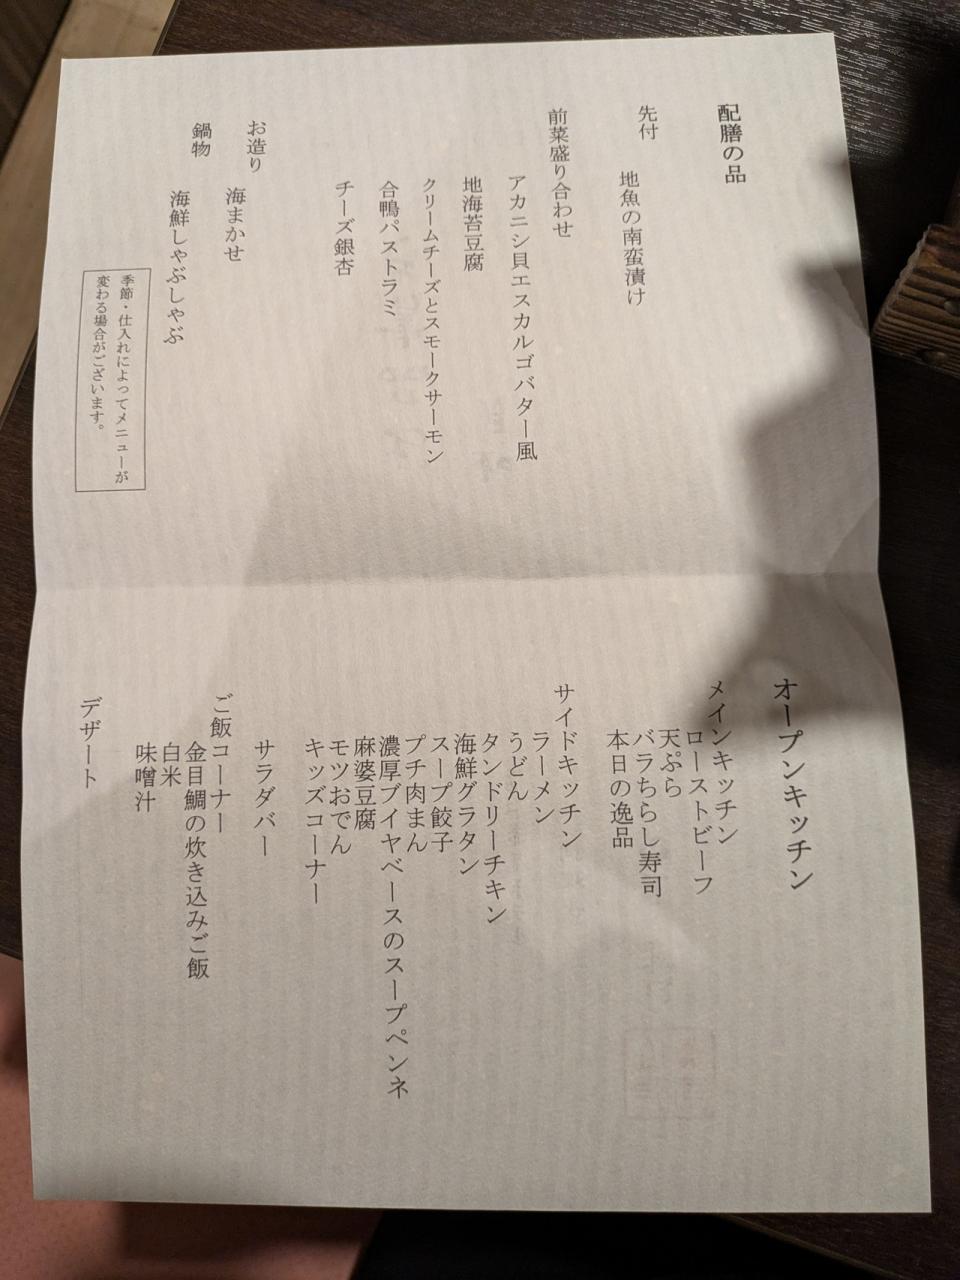 配膳の品
先付
地魚の南蛮漬け
前菜盛り合わせ
アカニシ貝エスカルゴバター風
地海苔豆腐
クリームチーズとスモークサーモン
合鴨パストラミ
チーズ銀杏
お造り
海まかせ
鍋物
海鮮しゃぶしゃぶ
季節・仕入れによってメニューが
変わる場合がございます。
オープンキッチン
メインキッチン
ローストビーフ
天ぷら
バラちらし寿司
本日の逸品
サイドキッチン
ラーメン
うどん
タンドリーチキン
海鮮グラタン
スープ餃子
プチ肉まん
濃厚ブイヤベースのスープペンネ
麻婆豆腐
モツおでん
キッズコーナー
サラダバー
ご飯コーナー
金目鯛の炊き込みご飯
白米
味噌汁
デザート